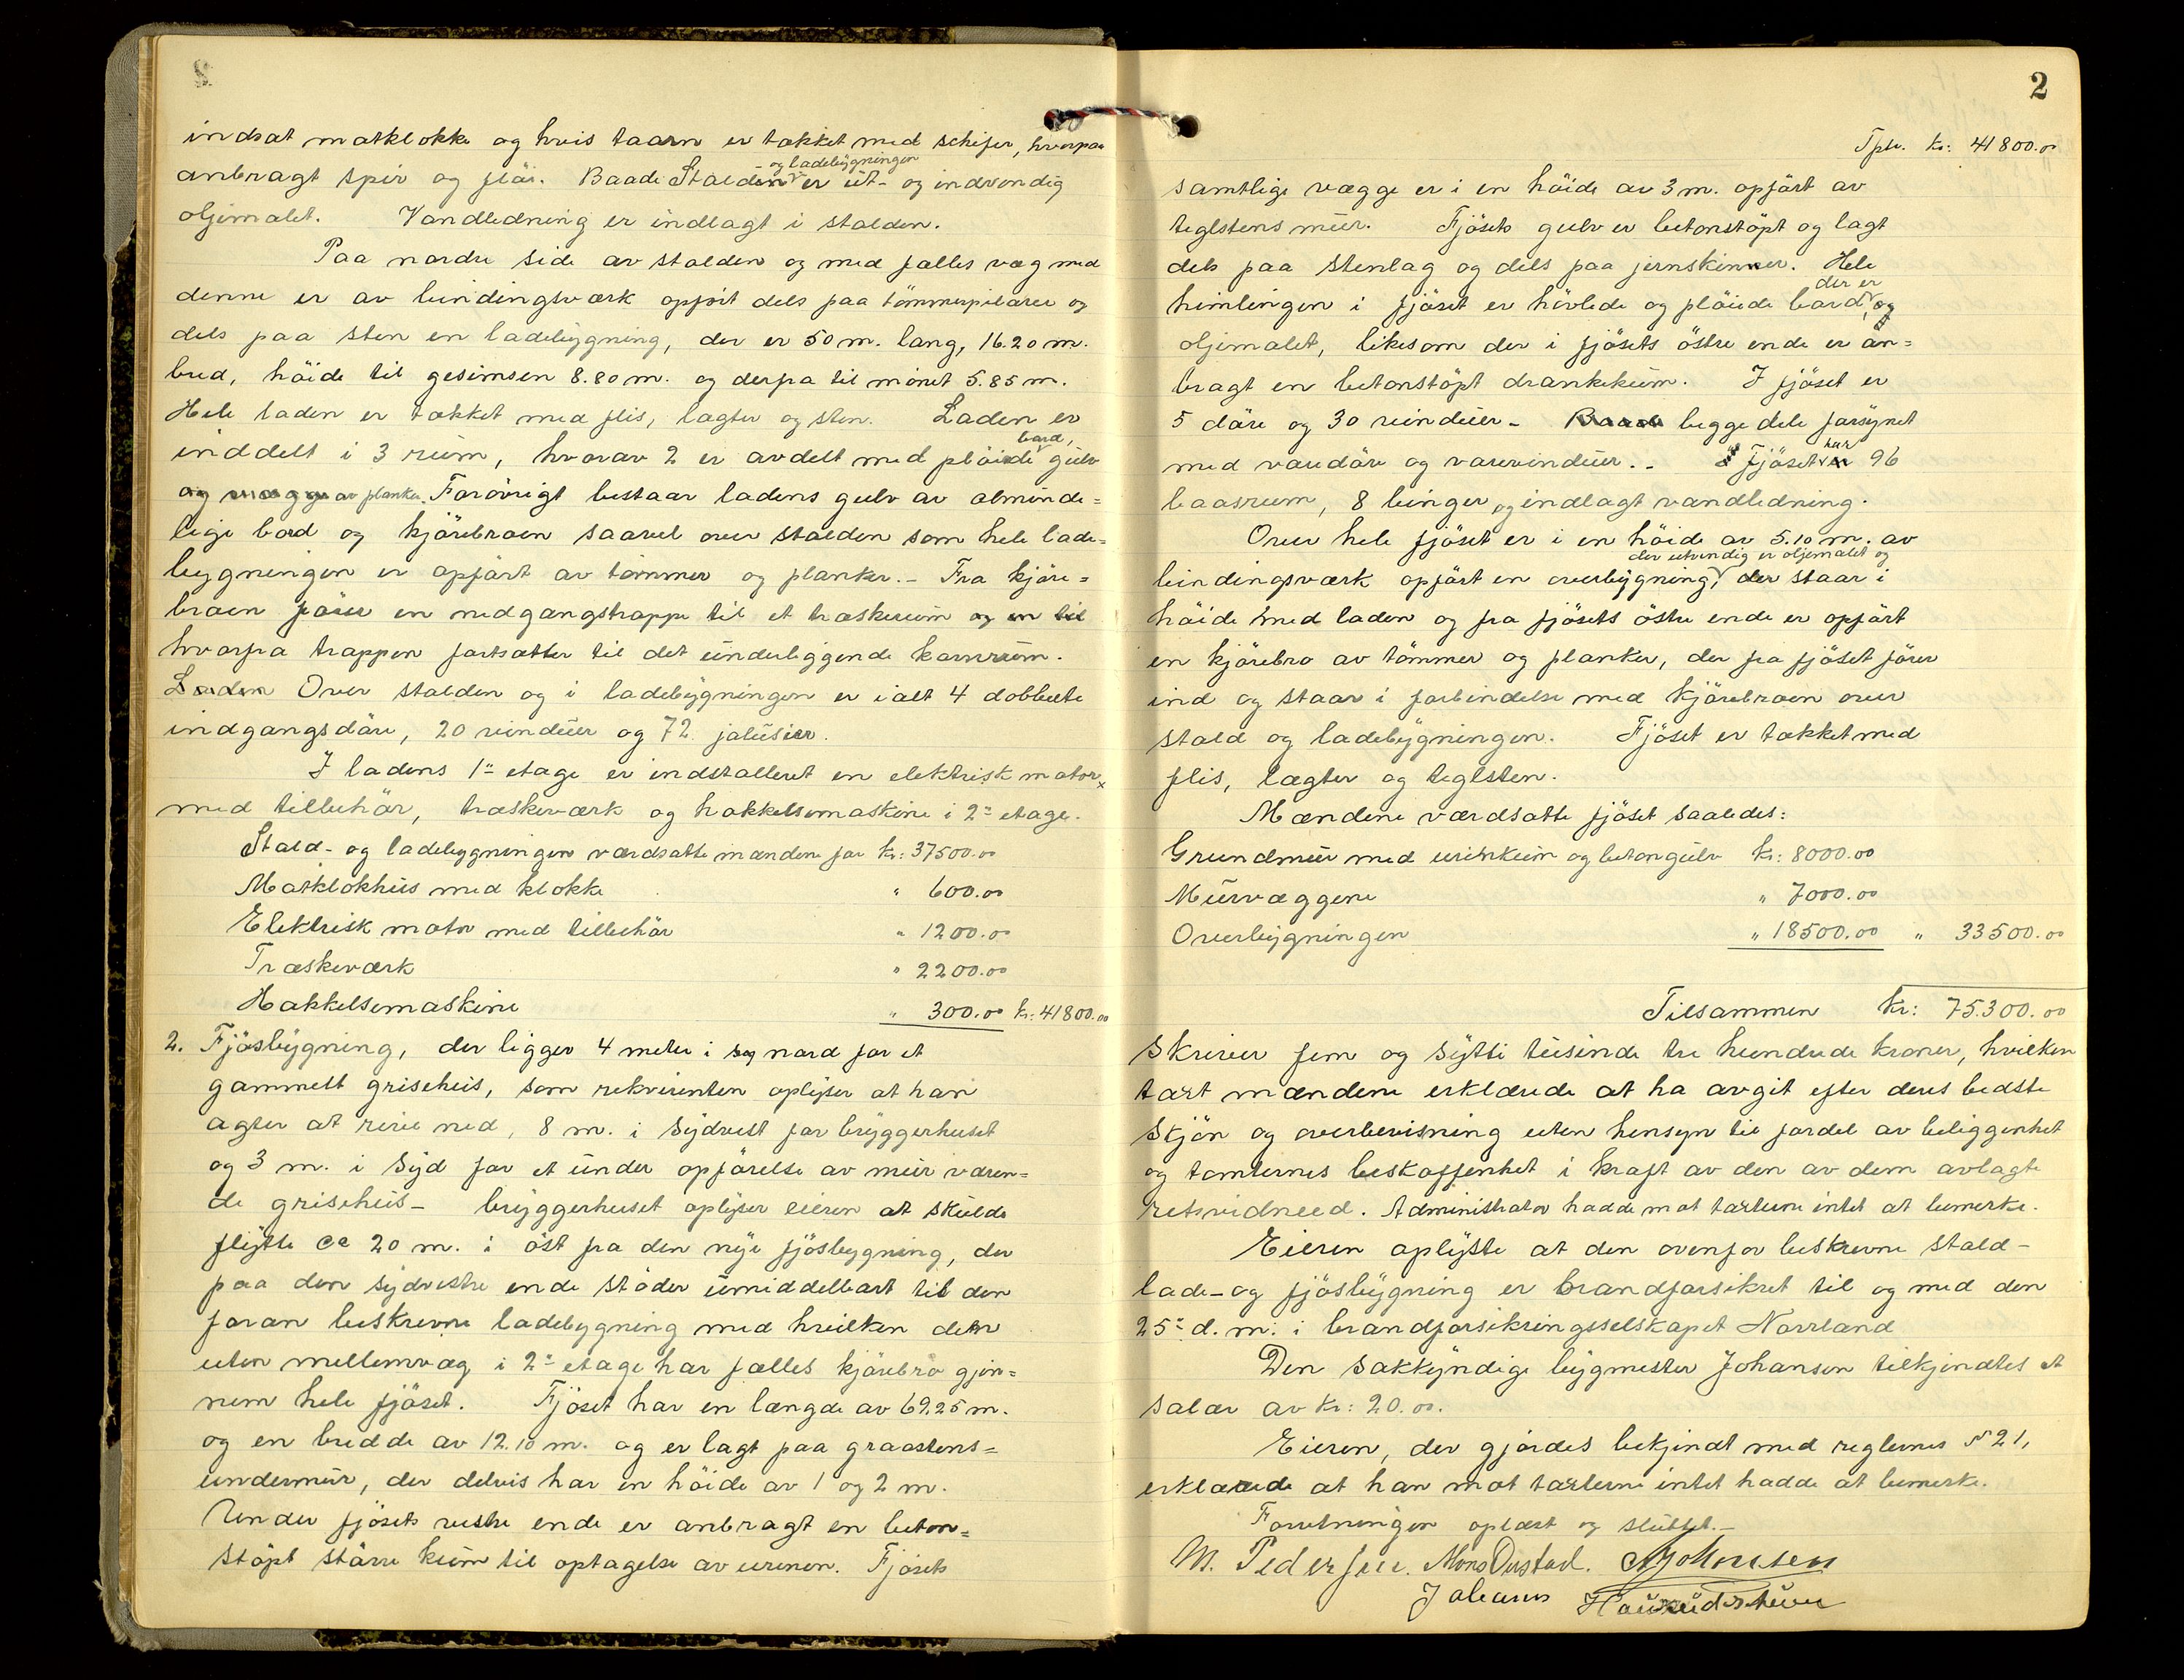 indsat matklokke og hvis taarn er tækket med schifer, hvorpaa
og ladebygningen
anbragt spir og fløi. Baade Stalden er ut- og indvendig
oljemalet. Vandledning er indlagt i stalden.
Paa nordre side av stalden og med fælles væg med
denne er av bindingsværk opført dels paa tømmerpilarer og
dels paa sten en ladebygning, der er 50 m. lang, 16.20 m.
bred, høide til gesimsen 8.80 m. og derfra til mønet 5.85 m.
Hele laden er tækket med flis, lægter og sten. Laden er
bord,
inddelt i 3 rum, hvorav 2 er avdelt med pløiede gulv
og vægge av planker. Forøvrigt bestaar ladens gulv av alminde=
lige bord og kjørebroen saavel over stalden som hele lade=
bygningen er opført av tømmer og planker.- Fra kjøre=
broen fører en nedgangstrappe til et træskerum og en til
hvorfra trappen fortsætter til det underliggende kornrum.
Laden Over stalden og i ladebygningen er ialt 4 dobbelte
indgangsdøre, 20 vinduer og 72 jalusier.
I ladens 1ste etage er indstalleret en elektrisk motor x
med tilbehør, træskeværk og hakkelsemaskine i 2den etage.
Stald- og ladebygningen værdsatte mændene for kr: 37500.00
Matklokhus med klokke " 600.00
Elektrisk motor med tilbehør " 1200.00
Træskeværk " 2200.00
Hakkelsemaskine " 300.00 kr: 41800.00
2. Fjøsbygning, der ligger 4 meter i nord for et
gammelt grisehus, som rekvirenten oplyser at han
agter at rive ned, 8 m. i sydvest for bryggerhuset
og 3 m. i syd for et under opførelse av mur væren=
de grisehus- bryggerhuset oplyser eieren at skulde
flytte ca 20 m. i øst fra den nye fjøsbygning, der
paa den sydvestre ende støder umiddelbart til den
foran beskrevne ladebygning med hvilken den
uten mellemvæg i 2den etage har fælles kjørebro gjen=
nem hele fjøset. Fjøset har en længde av 69.25 m.
og en bredde av 12.10 m. og er lagt paa graastens=
undermur, der delvis har en høide av 1 og 2 m.
Under fjøsets vestre ende er anbragt en beton=
støpt større kum til optagelse av urinen. Fjøsets
2
Tpt. kr: 41800.00
samtlige vægge er i en høide av 3 m. opført av
teglstens mur. Fjøsets gulv er betonstøpt og lagt
dels paa stenlag og dels paa jernskinner. Hele
der er
himlingen i fjøset er høvlede og pløiede bord, og
oljemalet, likesom der i fjøsets østre ende er an=
bragt en betonstøpt drankekum. I fjøset er
5 døre og 30 vinduer- begge dele forsynet
har
med vardøre og varevinduer.- Fjøset er 96
baasrum, 8 binger og indlagt vandledning.
Over hele fjøset er i en høide av 5.10 m. av
der utvendig er oljemalet og
bindingsværk opført en overbygning, der staar i
høide med laden og fra fjøsets østre ende er opført
en kjørebro av tømmer og planker, der fra fjøset fører
ind og staar i forbindelse med kjørebroen over
stald og ladebygningen. Fjøset er tækket med
flis, lægter og teglsten.
Mændene værdsatte fjøset saaledes:
Grundmur med urinkum og betongulv kr: 8000.00
Murvæggene " 7000.00
Overbygningen " 18500.00 " 33500.00
Tilsammen kr: 75.300.00
skriver fem og sytti tusinde tre hundrede kroner, hvilken
takst mændene erklærede at ha avgit efter deres bedste
skjøn og overbevisning uten hensyn til fordel av beliggenhet
og tomternes beskaffenhet i kraft av den av dem avlagte
retsvidneed. Administrator hadde mot taxterne intet at bemerke.
Eieren oplyste at den ovenfor beskrevne stald-
lade- og fjøsbygning er brandforsikret til og med den
25de d. m. i brandforsikringsselskapet Norrland
Den sakkyndige bygmester Johansen tilkjendtes et
salær av kr: 20.00.
Eieren, der gjordes bekjendt med reglernes § 21,
erklærede at han mot taxterne intet hadde at bemerke.
Forretningen oplæst og sluttet.-
M. Pedersen. Mons Oustad. Johansen
Johans Haurudstuen